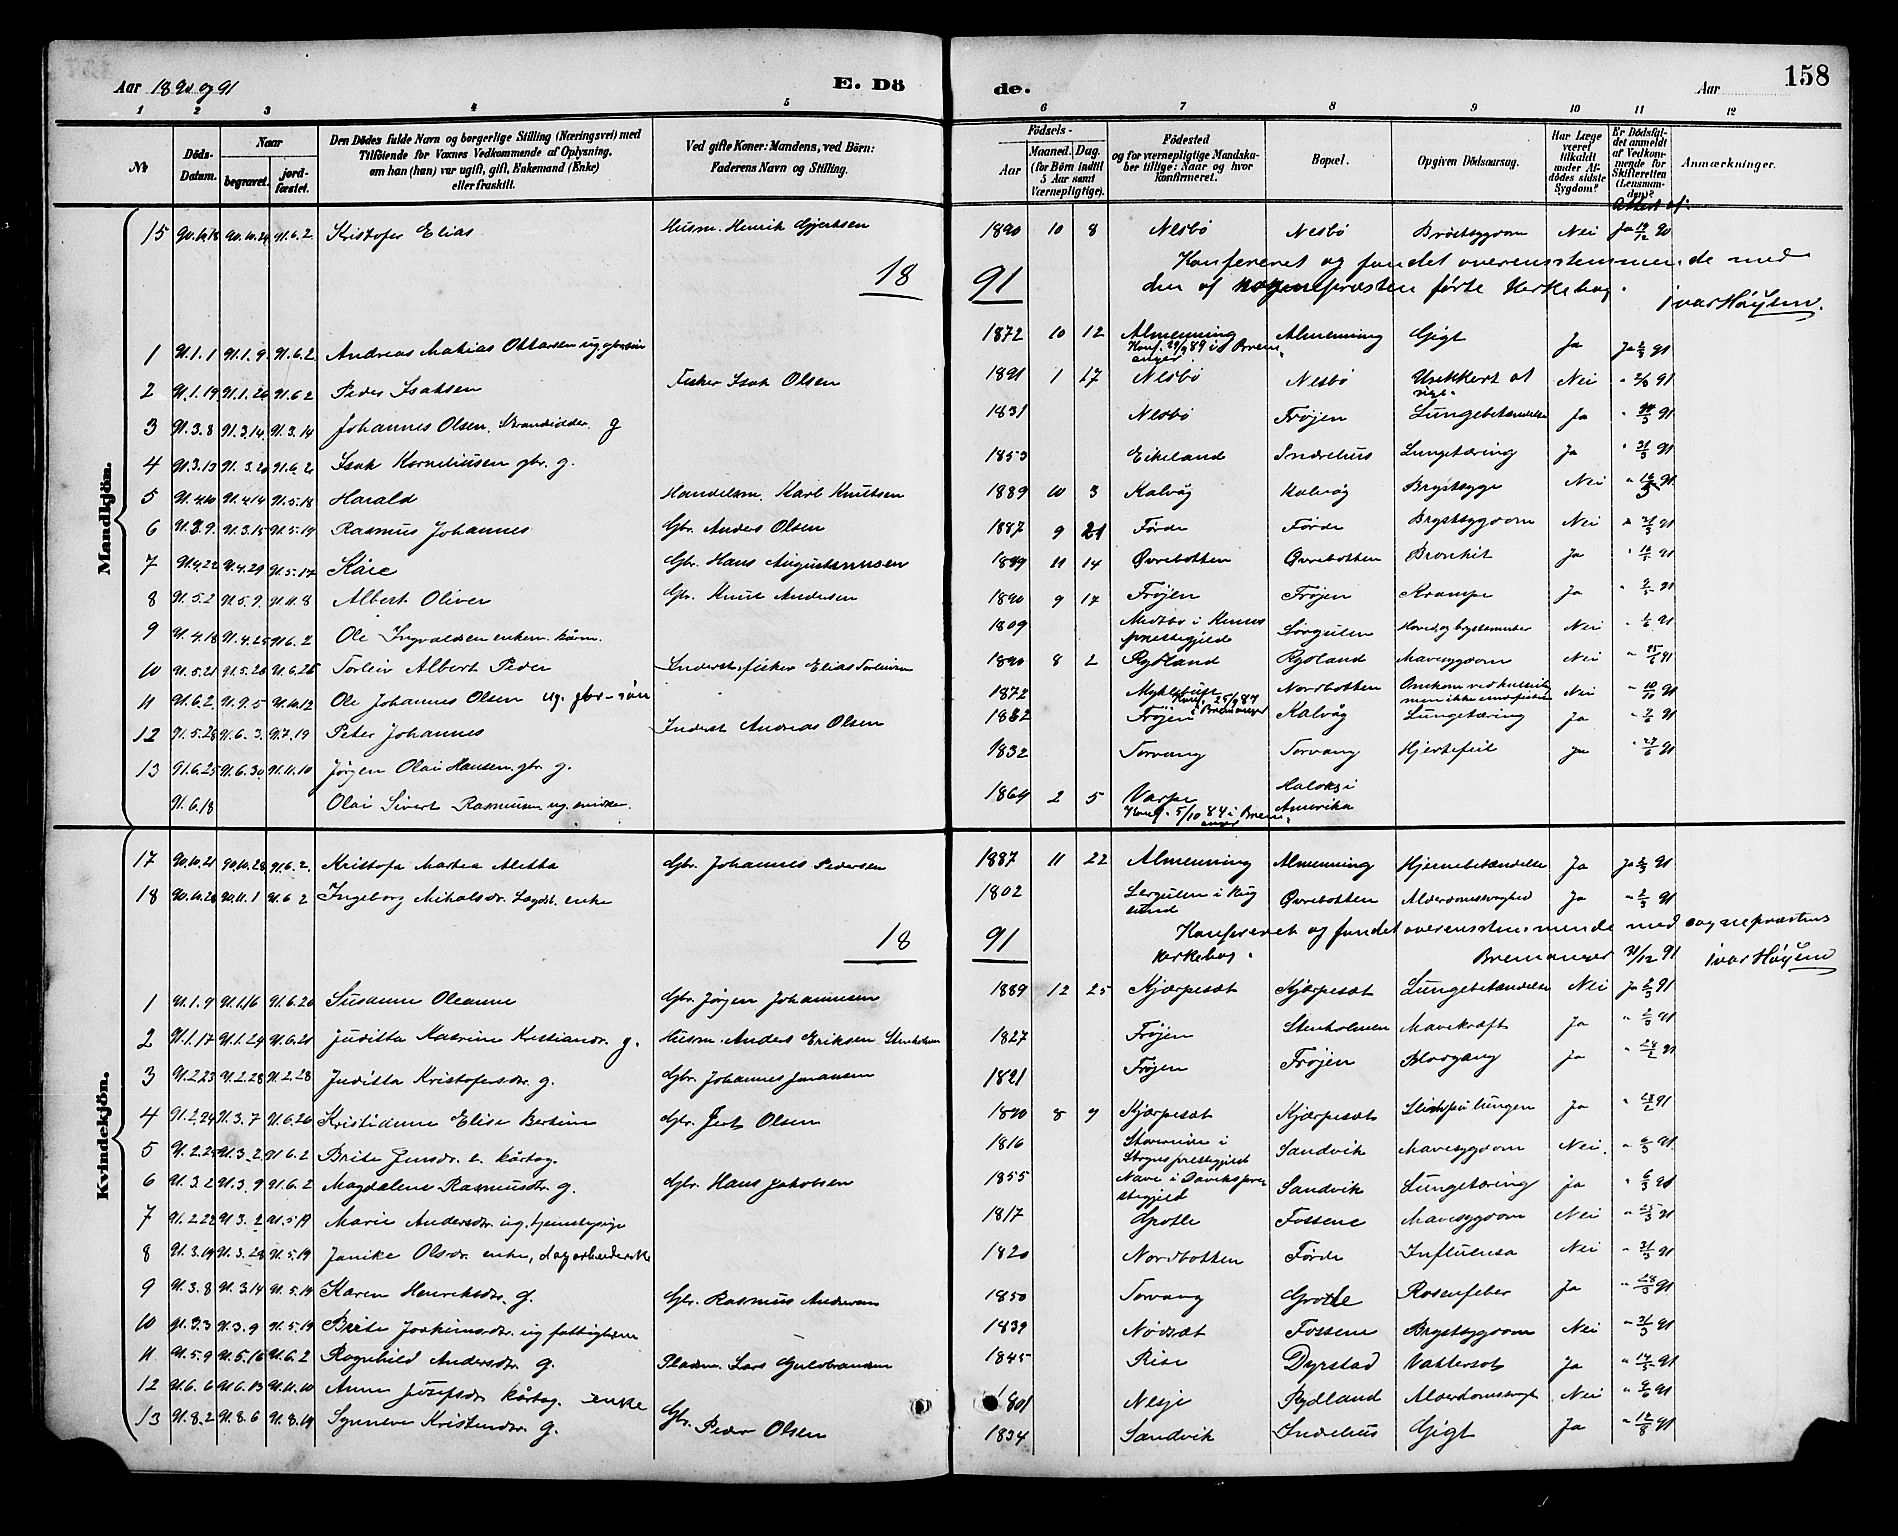 Aar 1890 og 91 E. Dö de. Aar 158
1 2 3 4 5 6 7 8 9 10 11 12
№ Döds-Datum. Naar begravet. jord-fæstet. Den Dödes fulde Navn og borgerlige Stilling (Næringsvei) med Tilföiende for Voxnes Vedkommende af Oplysning, om han (hun) var ugift, gift, Enkemand (Enke) eller fraskilt. Ved gifte Koner: Mandens, ved Börn: Faderens Navn og Stilling. Födsels- Aar Maaned. Dag. (for Börn indtil 5 Aar samt Værnepligtige). Födested og for værnepligtige Mandska-ber tillige: Naar og hvor konfirmeret. Bopæl. Opgiven Dödsaarsag. Har Læge været tilkaldt under Af-dödes sidste Sygdom? Er Dödsfal-det anmeldt af Vedkom-mende for Skifteretten (Lensman-den)? Anmærkninger.
Mandkjön.
15 90.10.18 90.10.24 91.6.2 Kristofer Elias Husm. Henrik Gjertsen 1890 10 8 Nesbö Nesbö Bröstsygdom Nei Ja 90
18 91 Konfereret og fundet overensstemmende med
den af sognepræsten förte kirkebog. Ivar Höysen.
1 91.1.1 91.1.9 91.6.2 Andreas Matias Ottarsen ug. gbrsön 1872 10 12 Almenning Konf. 29/9 89 i Bremanger Almenning Gigt Ja Ja 91
2 91.1.19 91.1.26 91.6.2 Peder Isaksen Fisker Isak Olsen 1891 1 17 Nesbö Nesbö Nei 91
3 91.3.8 91.3.14 91.3.14 Johannes Olsen g 1831 Nesbö Fröjen Lungebetændelse Ja 91
4 91.3.13 91.3.20 91.6.2 Isak Korneliussen gbr. g. 1853 Eikeland Indrehus Lungetæring Ja 91
5 91.4.10 91.4.14 91.5.18 Harald Handelsm. Karl Knutsen 1889 10 3 Kalvåg Kalvåg Brystsyge Nei 91
6 91.3.9 91.3.15 91.5.19 Rasmus Johannes Gbr. Anders Olsen 1887 9 21 Förde Förde Brystsygdom Nei 91
7 91.4.22 91.4.29 91.5.17 Kåre Gbr. Hans Augustinussen 1889 11 14 Øvrebotten Øvrebotten Bronkit Ja 91
8 91.5.2 91.5.9 91.11.8 Albert Oliver Gbr. Knut Andersen 1890 9 17 Fröjen Fröjen Krampe Ja 91
9 91.4.18 91.4.25 91.6.2 Ole Ingvaldsen enkem. kårm. 1809 Midtbö i Kinns prestegjeld Sörgulen Nei 91
10 91.5.21 91.5.28 91.6.26 Torleiv Albert Peder Inderst, fisker Elias Torleivsen 1890 8 2 Rydland Rydland Mavesygdom Nei 91
11 91.6.2 91.9.5 91.10.12 Ole Johannes Olsen ug. gbr-sön 1872 Myklebust Konf. 25/9 87 i Bremanger Nordbotten Nei 91
12 91.5.28 91.6.3 91.7.19 Peter Johannes Inderst Andreas Olsen 1882 Fröjen Kalvåg Lungetæring Ja 91
13 91.6.25 91.6.30 91.11.10 Jörgen Olai Hansen gbr. g. 1832 Torvang Torvang Hjertefeil Ja 91
91.6.18 Olai Sivert Rasmussen ug. snidker 1869 2 5 Varpe Konf. 5/10 84 i Bremanger Amerika
Kvindekjön.
17 90.10.21 90.10.28 91.6.2 Kristofa Martea Aletta Gbr. Johannes Pedersen 1887 11 22 Almenning Almenning Hjernebetændelse Ja Ja 91
18 90.10.28 90.11.1 91.6.2 Ingeborg Nikolsdr. Lægdsl. enke 1802 Lergulen i Rugsund Øvrebotten Alderdomssvaghed Ja 91
18 91 Konfereret og fundet overensstemmende med sogneprestens
kirkebog. Bremanger 31/12 91 Ivar Höysen
1 91.1.9 91.1.16 91.6.26 Susanne Oleanne Gbr. Jörgen Johannesen 1889 12 25 Kjærpesæt Kjærpesæt Lungebetændelse Nei Ja 91
2 91.1.17 91.1.29 91.6.21 Juditta Katrine Kristiansdr. g. Husm. Anders Eriksen Stenholmen 1827 Fröjen Stenholmen Mavekræft Ja 91
3 91.2.23 91.2.28 91.2.28 Juditta Kristofersdr. g. Gbr. Johannes 1821 Fröjen Fröjen Blodgang Ja 91
4 91.2.24 91.3.7 91.6.26 Kristianne Elise Bertine Gbr. Jert Olsen 1890 8 9 Kjærpesæt Kjærpesæt Slim på lungen Ja 91
5 91.2.25 91.3.2 91.6.2 Brite Jensdr. e. kårkg. 1816 i prestegjeld Sandvik Mavesygdom Nei. 91
6 91.3.2 91.3.9 91.6.2 Magdalene Rasmusdr. g. Gbr. Hans Jakobsen 1855 Nave i Daviks prestegjeld Sandvik Lungetæring Ja 91
7 91.2.22 91.3.2 91.5.19 Marie Andersdr. ug. tjenestepige 1817 Grotle Fossene Mavesygdom Nei 91
8 91.3.19 91.3.28 91.5.19 Janike Olsdr. enke, dagarbeiderske 1820 Nordbotten Förde Influensa Nei 91
9 91.3.8 91.3.14 91.5.19 Karen Henriksdr. g. Gbr. Rasmus Andersen 1850 Torvang Grotle Rosenfeber Ja 91
10 91.3.3 91.3.9 91.5.19 Brite Joakimsdr. ug fattiglem 1839 Nödsæt Fossene Brystsygdom Nei 91
11 91.5.9 91.5.16 91.6.2 Ragnhild Andersdr. g. Pladsm. Lars Gulbrandsen 1845 Rise Dyrstad Vattersot Ja 91
12 91.6.6 91.6.13 91.11.10 Anne Josefsdr. kårkg. enke 1801 Nesje Rydland Alderdomssvagh. Nei 91
13 91.8.2 91.8.6 91.8.19 Synneve Kristensdr. g. Gbr. Peder Olsen 1834 Sandvik Indrehus Gigt Ja 91